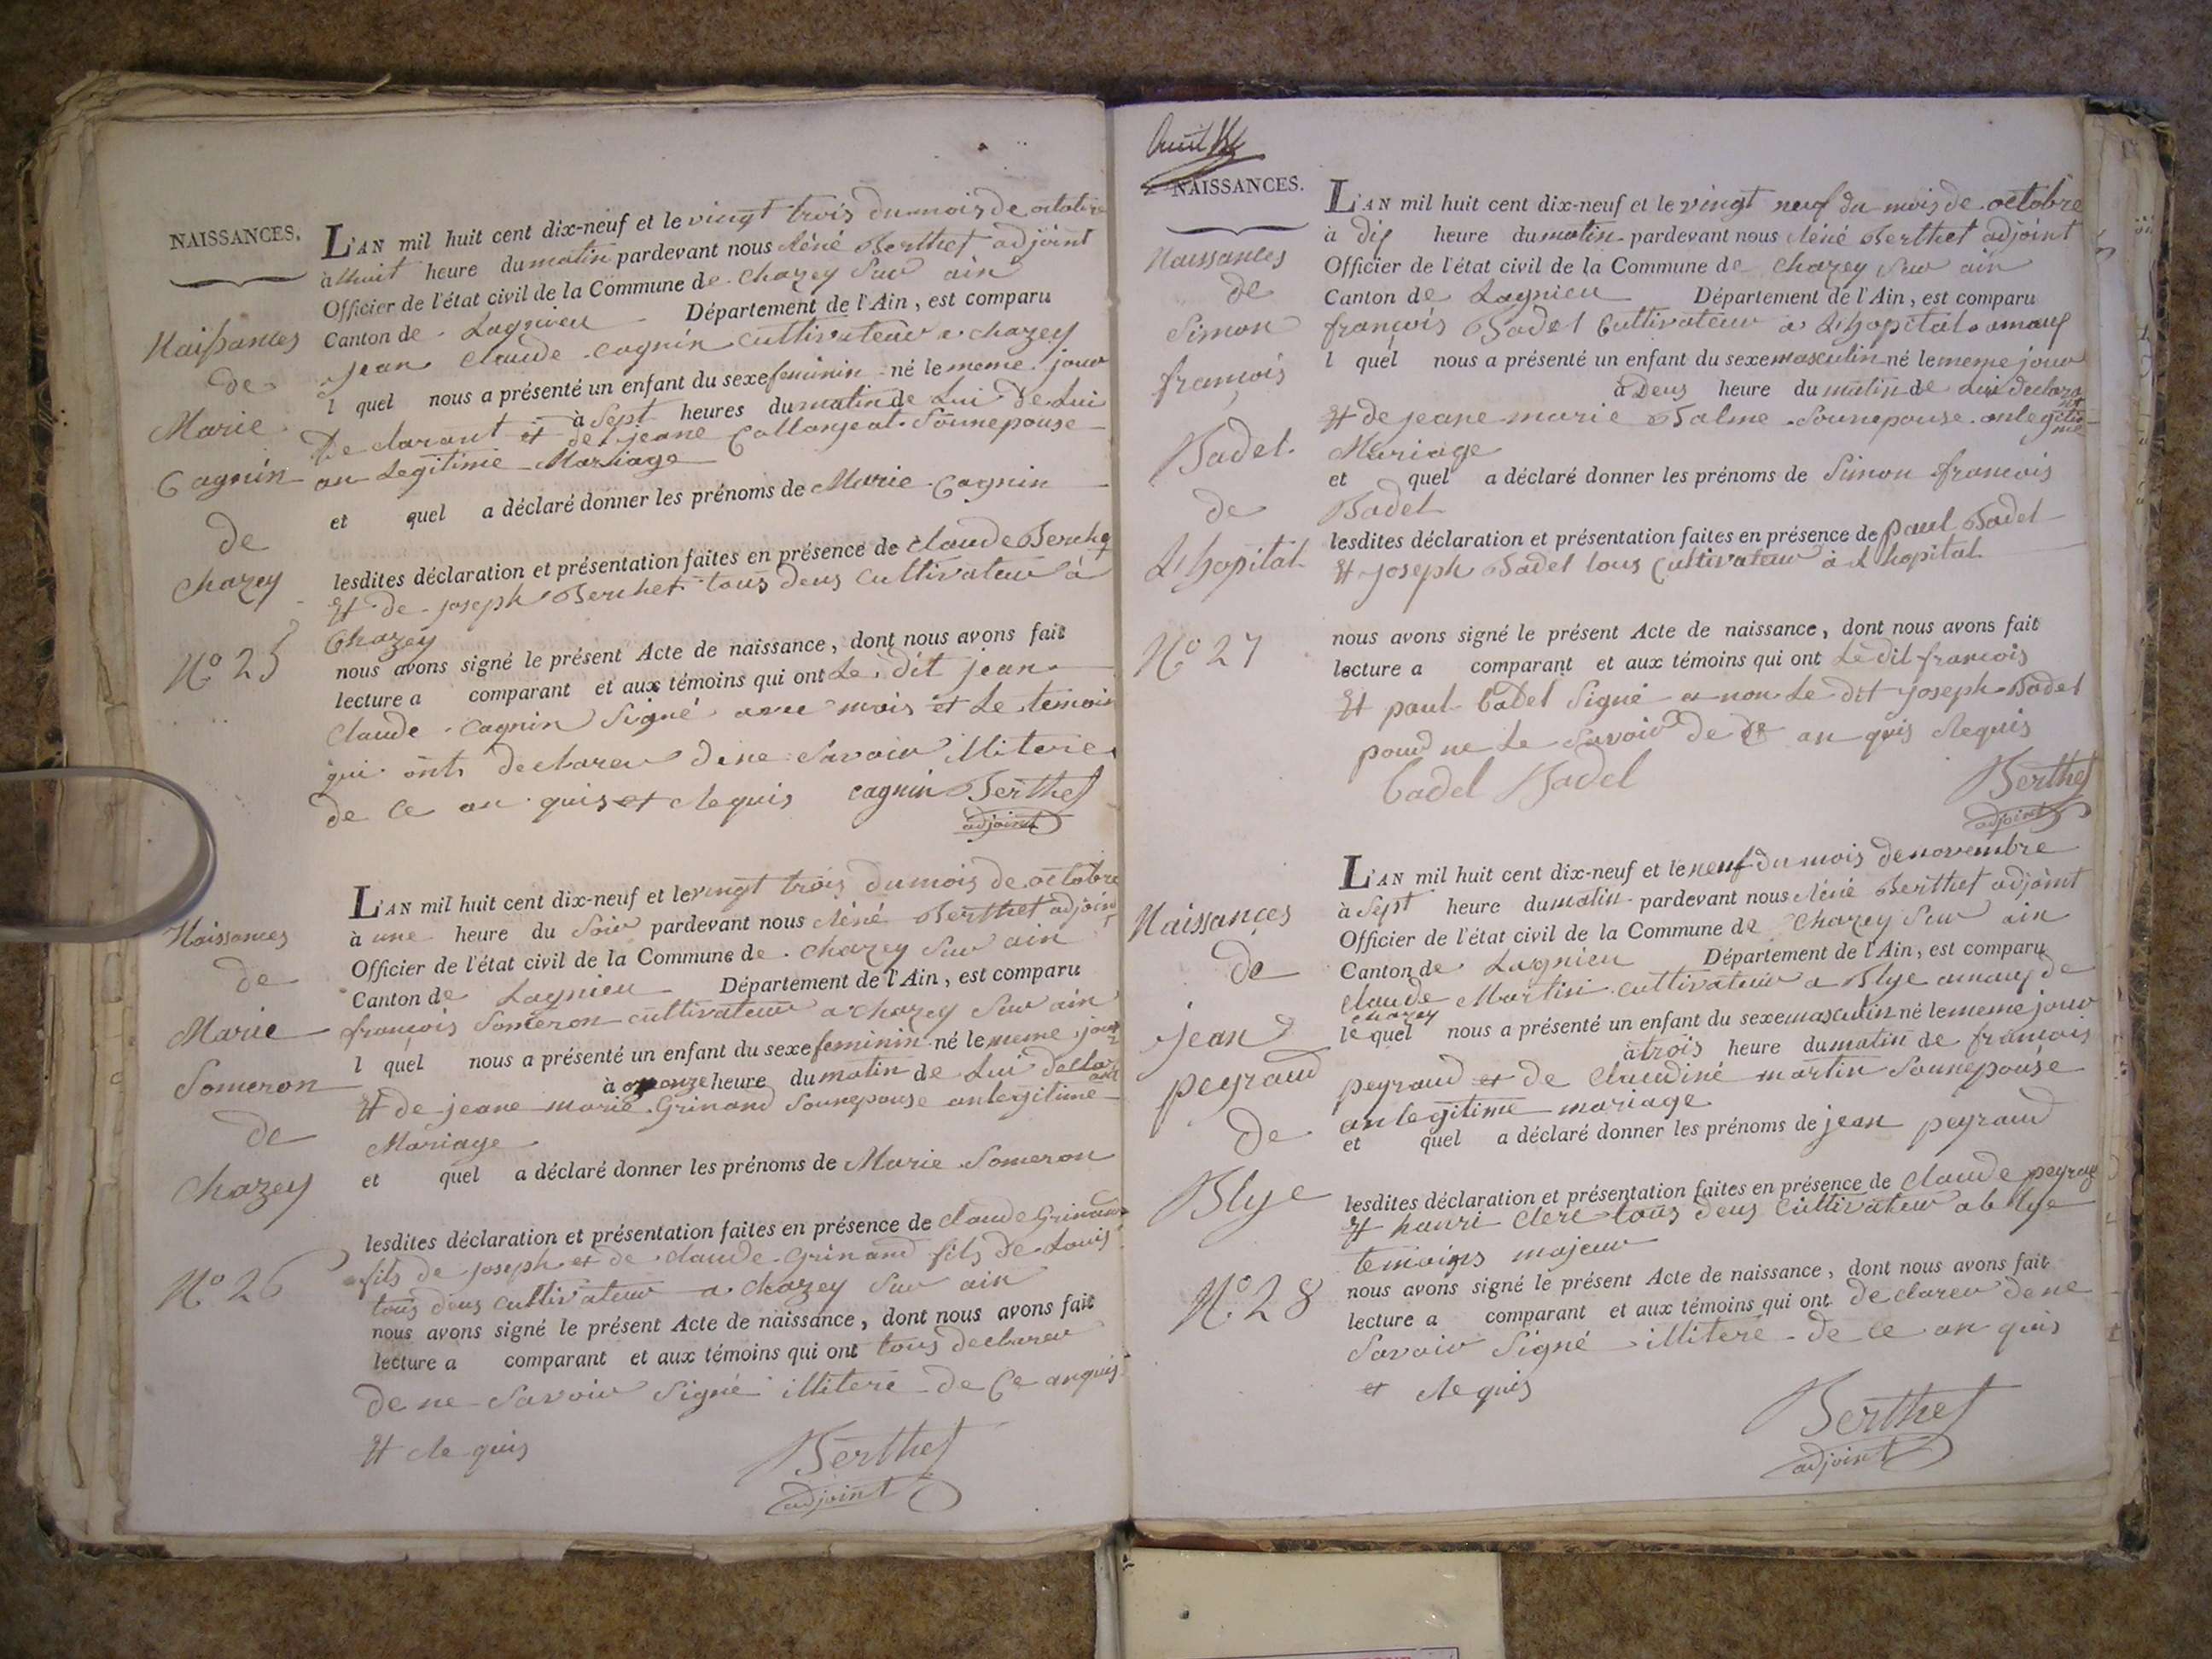 NAISSANCES.
Naissances
de
Marie
Cagnin
de
Chazey
N.º 25
L'AN mil huit cent dix-neuf et le vingt trois du mois de octobre
à huit heure du matin pardevant nous Réné Berthet adjoint
Officier de l'état civil de la Commune de Chazey Sur ain
Canton de Lagnieu Département de l'Ain, est comparu
jean Claude Cagnin Cultivateur a Chazey
l quel nous a présenté un enfant du sexe feminin né le meme jour
à Sept heures du matin de Lui de Lui
De clarant et de jeane Collonjeat Sonnepouse
an Legitime Mariage
et quel a déclaré donner les prénoms de Marie Cagnin
lesdites déclaration et présentation faites en présence de Claude
Et de joseph Beruhet tous deus Cultivateur à
Chazey
nous avons signé le présent Acte de naissance, dont nous avons fait
lecture a comparant et aux témoins qui ont Le dit jean
Claude Cagnin Signé avec mois et Le temoin
qui onts declareu de ne Savoir Illitere
de Ce an quis et Requis Cagnin Berthet
adjoint
Naissances
de
Marie
Someron
de
Chazey
N.º 26
L'AN mil huit cent dix-neuf et le vingt trois du mois de octobre
à une heure du Soir pardevant nous Réné Berthet adjoint
Officier de l'état civil de la Commune de Chazey Sur ain
Canton de Lagnieu Département de l'Ain, est comparu
françois Someron cultivateur a Chazey Sur ain
l quel nous a présenté un enfant du sexe feminin né le meme jour
à onze heure du matin de Lui
Et de jeane marie Grinand Sonnepouse an legitime
Mariage
et quel a déclaré donner les prénoms de Marie Someron
lesdites déclaration et présentation faites en présence de Claude Grinand
fils de joseph et de Claude Grinand fils de Louis
tous deus cultivateur a Chazey Sur ain
nous avons signé le présent Acte de naissance, dont nous avons fait
lecture a comparant et aux témoins qui ont tous declareu
de ne Savoir Signé illitere de Ce anquis
Et Requis Berthet
adjoint
NAISSANCES.
Naissances
de
Simon
françois
Badet
de
L'hopital
N.º 27
L'AN mil huit cent dix-neuf et le vingt neuf du mois de octobre
à dix heure du matin pardevant nous Réné Berthet adjoint
Officier de l'état civil de la Commune de Chazey Sur ain
Canton de Lagnieu Département de l'Ain, est comparu
françois Badet Cultivateur a L'hopital
l quel nous a présenté un enfant du sexe masculin né le meme jour
à Deus heure du matin de Lui declarant
Et de jeane marie Balme Sonnepouse an legetime
Mariage
et quel a déclaré donner les prénoms de Simon françois
Badet
lesdites déclaration et présentation faites en présence de paul Badet
Et joseph Badet tous Cultivateur à L'hopital
nous avons signé le présent Acte de naissance, dont nous avons fait
lecture a comparant et aux témoins qui ont Le dit françois
Et paul badet Signé et non Le dit joseph Badet
pour ne Le Savoir de an quis Requis
badet Badet Berthet
adjoint
Naissances
de
jean
peyraud
de
Blye
N.º 28
L'AN mil huit cent dix-neuf et le neuf du mois de novembre
à Sept heure du matin pardevant nous Réné Berthet adjoint
Officier de l'état civil de la Commune de Chazey Sur ain
Canton de Lagnieu Département de l'Ain, est comparu
Claude Martin cultivateur a Blye de
Chazey
le quel nous a présenté un enfant du sexe masculin né le meme jour
à trois heure du matin de francois
peyraud et de Claudine martin Sonnepouse
an legitime mariage
et quel a déclaré donner les prénoms de jean peyraud
lesdites déclaration et présentation faites en présence de Claude
Et hanri Clere tous deus Cultivateur a blye
temoins majeur
nous avons signé le présent Acte de naissance, dont nous avons fait
lecture a comparant et aux témoins qui ont declareu de ne
Savoir Signé illitere de Ce an quis
et Requis Berthet
adjoint